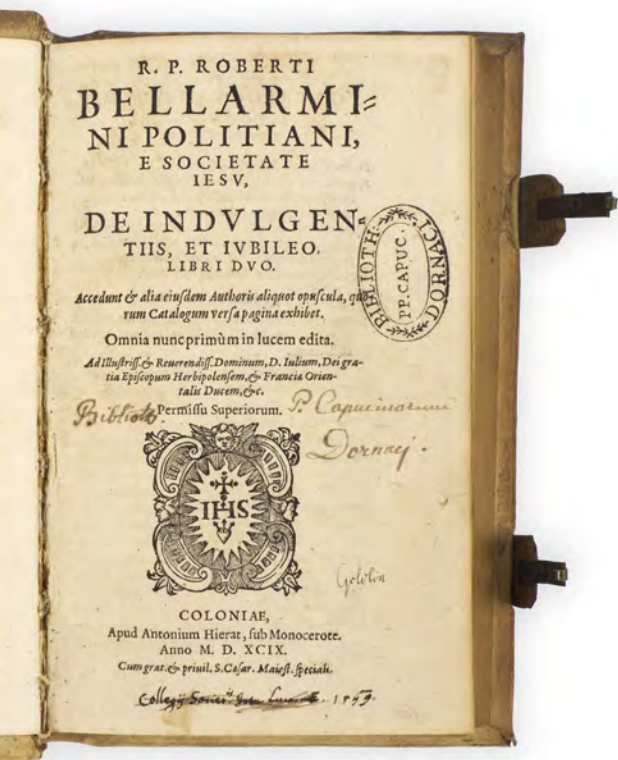 R. P. ROBERTI
BELLARMI=
NI POLITIANI,
E SOCIETATE
IESV,
DE INDVLGEN=
TIIS, ET IVBILEO.
LIBRI DVO.
BIBLIOTH. DORNACI
PP. CAPUC.
Accedunt & alia eiuſdem Authoris aliquot opuſcula, quo
rum Catalogum verſa pagina exhibet.
Omnia nunc primùm in lucem edita.
Ad Illuſtriſſ. & Reuerendiſſ. Dominum, D. Iulium, Dei gra-
tia Epiſcopum Herbipolenſem, & Franciæ Orien-
talis Ducem, &c.
Permiſſu Superiorum.
Biblioth. P. Capucinorum
Dornacj.
IHS
COLONIAE,
Apud Antonium Hierat, ſub Monocerote.
Anno M. D. XCIX.
Cum grat. & priuil. S. Cæſar. Maieſt. ſpeciali.
Collegij 1599.